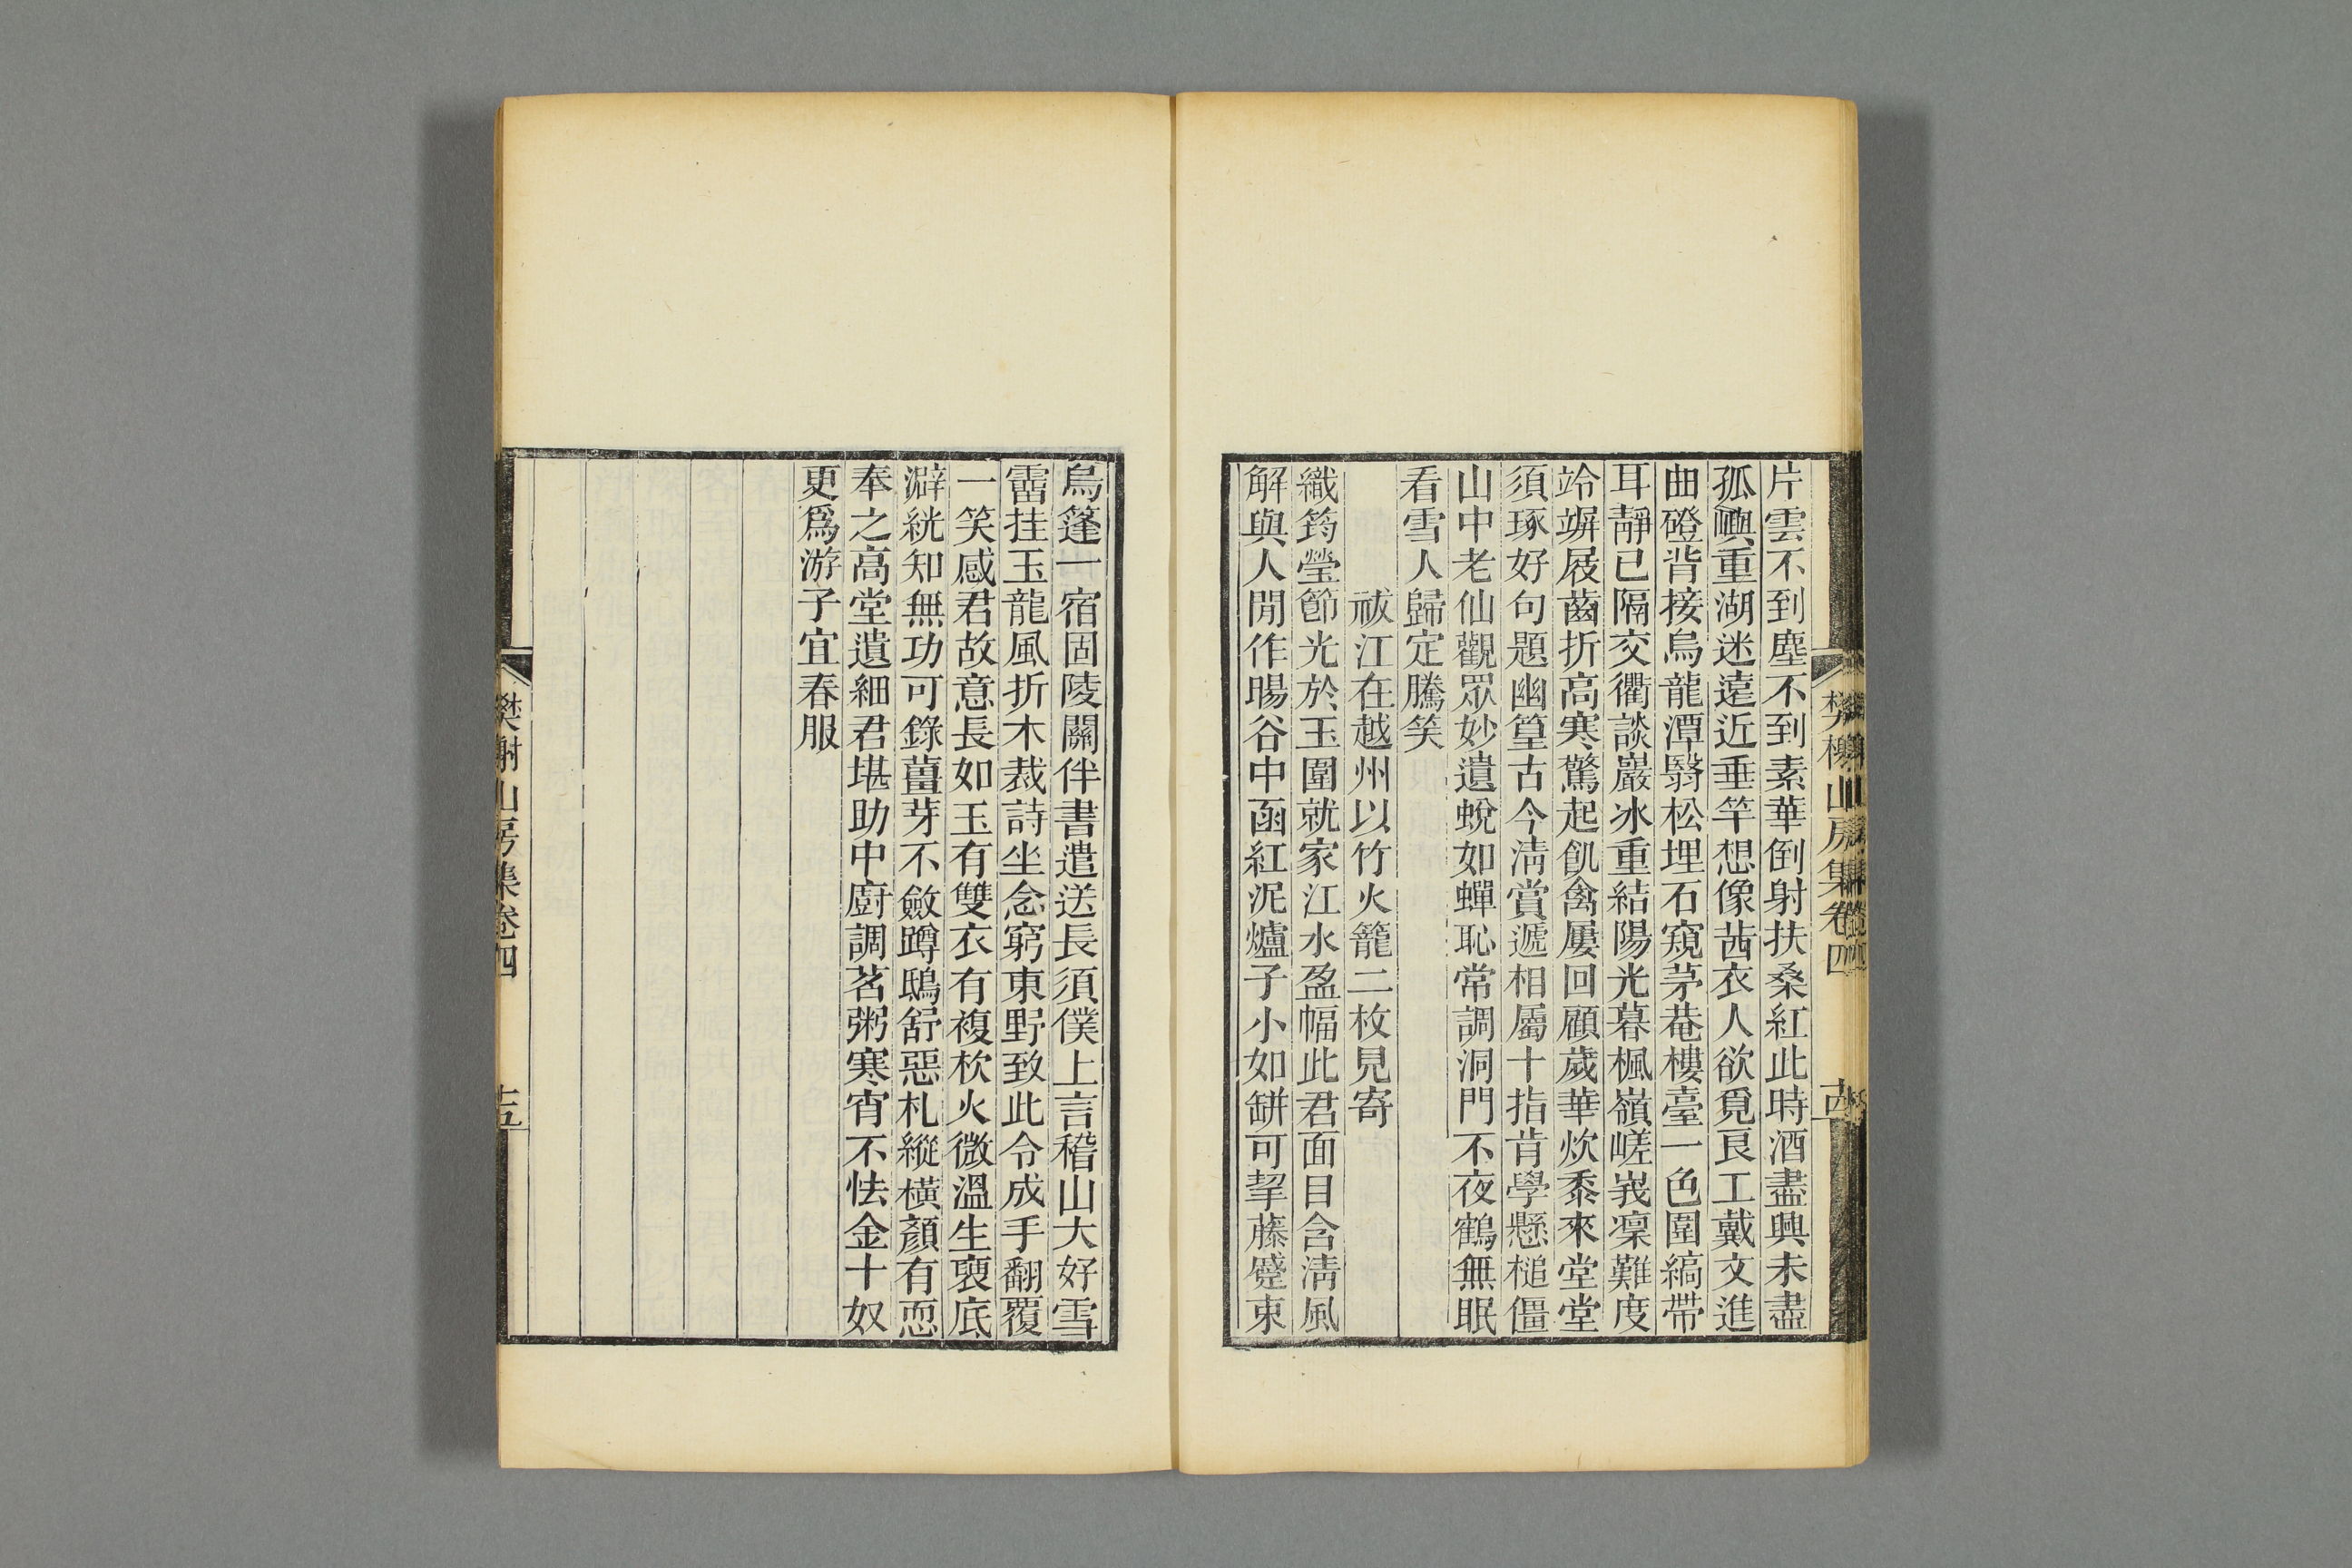 樊榭山房集卷四
片雲不到塵不到素華倒射扶桑紅此時酒盡興未盡
孤嶼重湖迷遠近垂竿想像茜衣人欲覓良工戴文進
曲磴背接烏龍潭翳松埋石窺茅菴樓臺一色圍縞帶
耳靜已隔交衢談巖冰重結陽光暮楓嶺嵯峩凜難度
竛竮屐齒折高寒驚起飢禽屢回顧歲華炊黍來堂堂
須琢好句題幽篁古今淸賞遞相屬十指肯學懸槌僵
山中老仙觀眾妙遺蛻如蟬恥常調洞門不夜鶴無眠
看雪人歸定騰笑
祓江在越州以竹火籠二枚見寄
織筠瑩節光於玉圍就家江水盈幅此君面目含淸風
解與人閒作暘谷中函紅泥爐子小如缾可挈藤躠束
烏篷一宿固陵關伴書遣送長須僕上言稽山大好雪
霤挂玉龍風折木裁詩坐念窮東野致此令成手翻覆
一笑感君故意長如玉有雙衣有複杴火微溫生裵底
澼絖知無功可錄薑芽不斂蹲鴟舒惡札縱橫顏有恧
奉之高堂遺細君堪助中廚調茗粥寒宵不怯金十奴
更爲游子宜春服
樊榭山房集卷四
十五